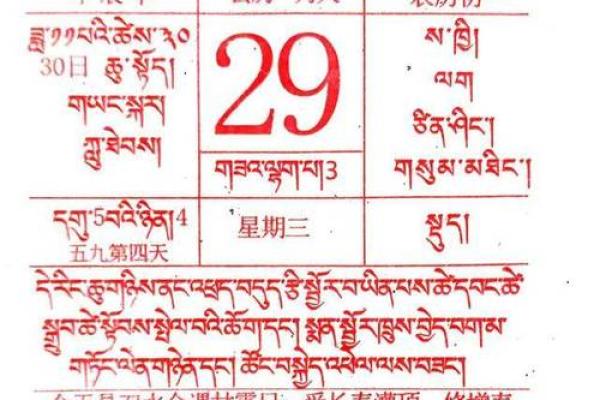 ཟླ་༡༡པའི་ཚེས་༣༠
30日 ཆུ་སྟོད།
གཡང་སྐར།
ཀླུ་ཐེབས།
29
གཟའ་ལྷག་པ།3
ས་ཁྱི།
ལག
ཙིན་ཤིང་།
གསུམ་མཐིང་།
དགུ་5བའི་ཉིན།4
五九第四天
星期三
སྡུད།
དེ་རིང་ཆུ་གཉིས་ནང་འཕྲད་བདུད་རྩི་སྦྱོར་བ་ཡིན་པས་ཚེ་དབང་ཚེ་
སྒྲུབ་ཚེ་སྟོབས་སྤེལ་བའི་ཆོ་ག་དང་། སྨན་སྦྱོར་ཁྲུས་བྱེད་བག་མ་
གཏོང་ལེན་གཉེན་དང་། ཚོང་བསྐྱེད་འཕེལ་ལས་བཟང་།